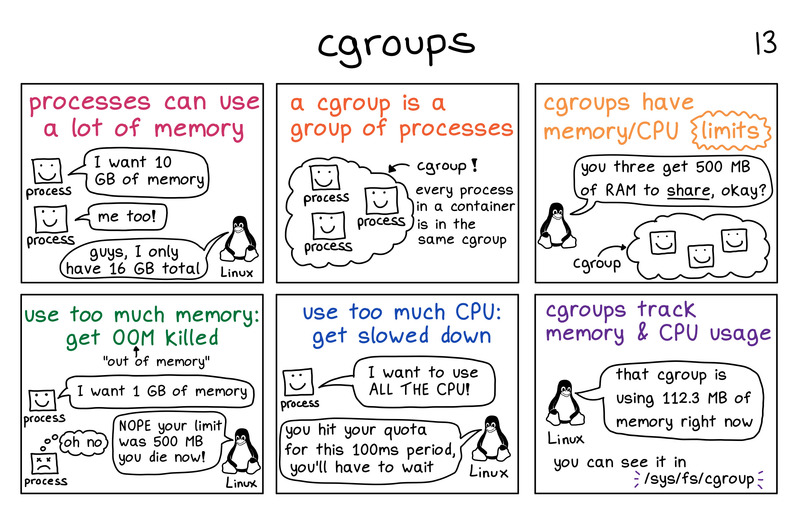 cgroups
13
processes can use
a lot of memory
I want 10
GB of memory
process
me too!
process
guys, I only
have 16 GB total
Linux
a cgroup is a
group of processes
process
process
process
cgroup!
every process
in a container
is in the
same cgroup
cgroups have
memory/CPU limits
you three get 500 MB
of RAM to share, okay?
cgroup
use too much memory:
get OOM killed
"out of memory"
I want 1 GB of memory
process
oh no
process
NOPE your limit
was 500 MB
you die now!
Linux
use too much CPU:
get slowed down
I want to use
ALL THE CPU!
process
you hit your quota
for this 100ms period,
you'll have to wait
Linux
cgroups track
memory & CPU usage
that cgroup is
using 112.3 MB of
memory right now
Linux
you can see it in
/sys/fs/cgroup